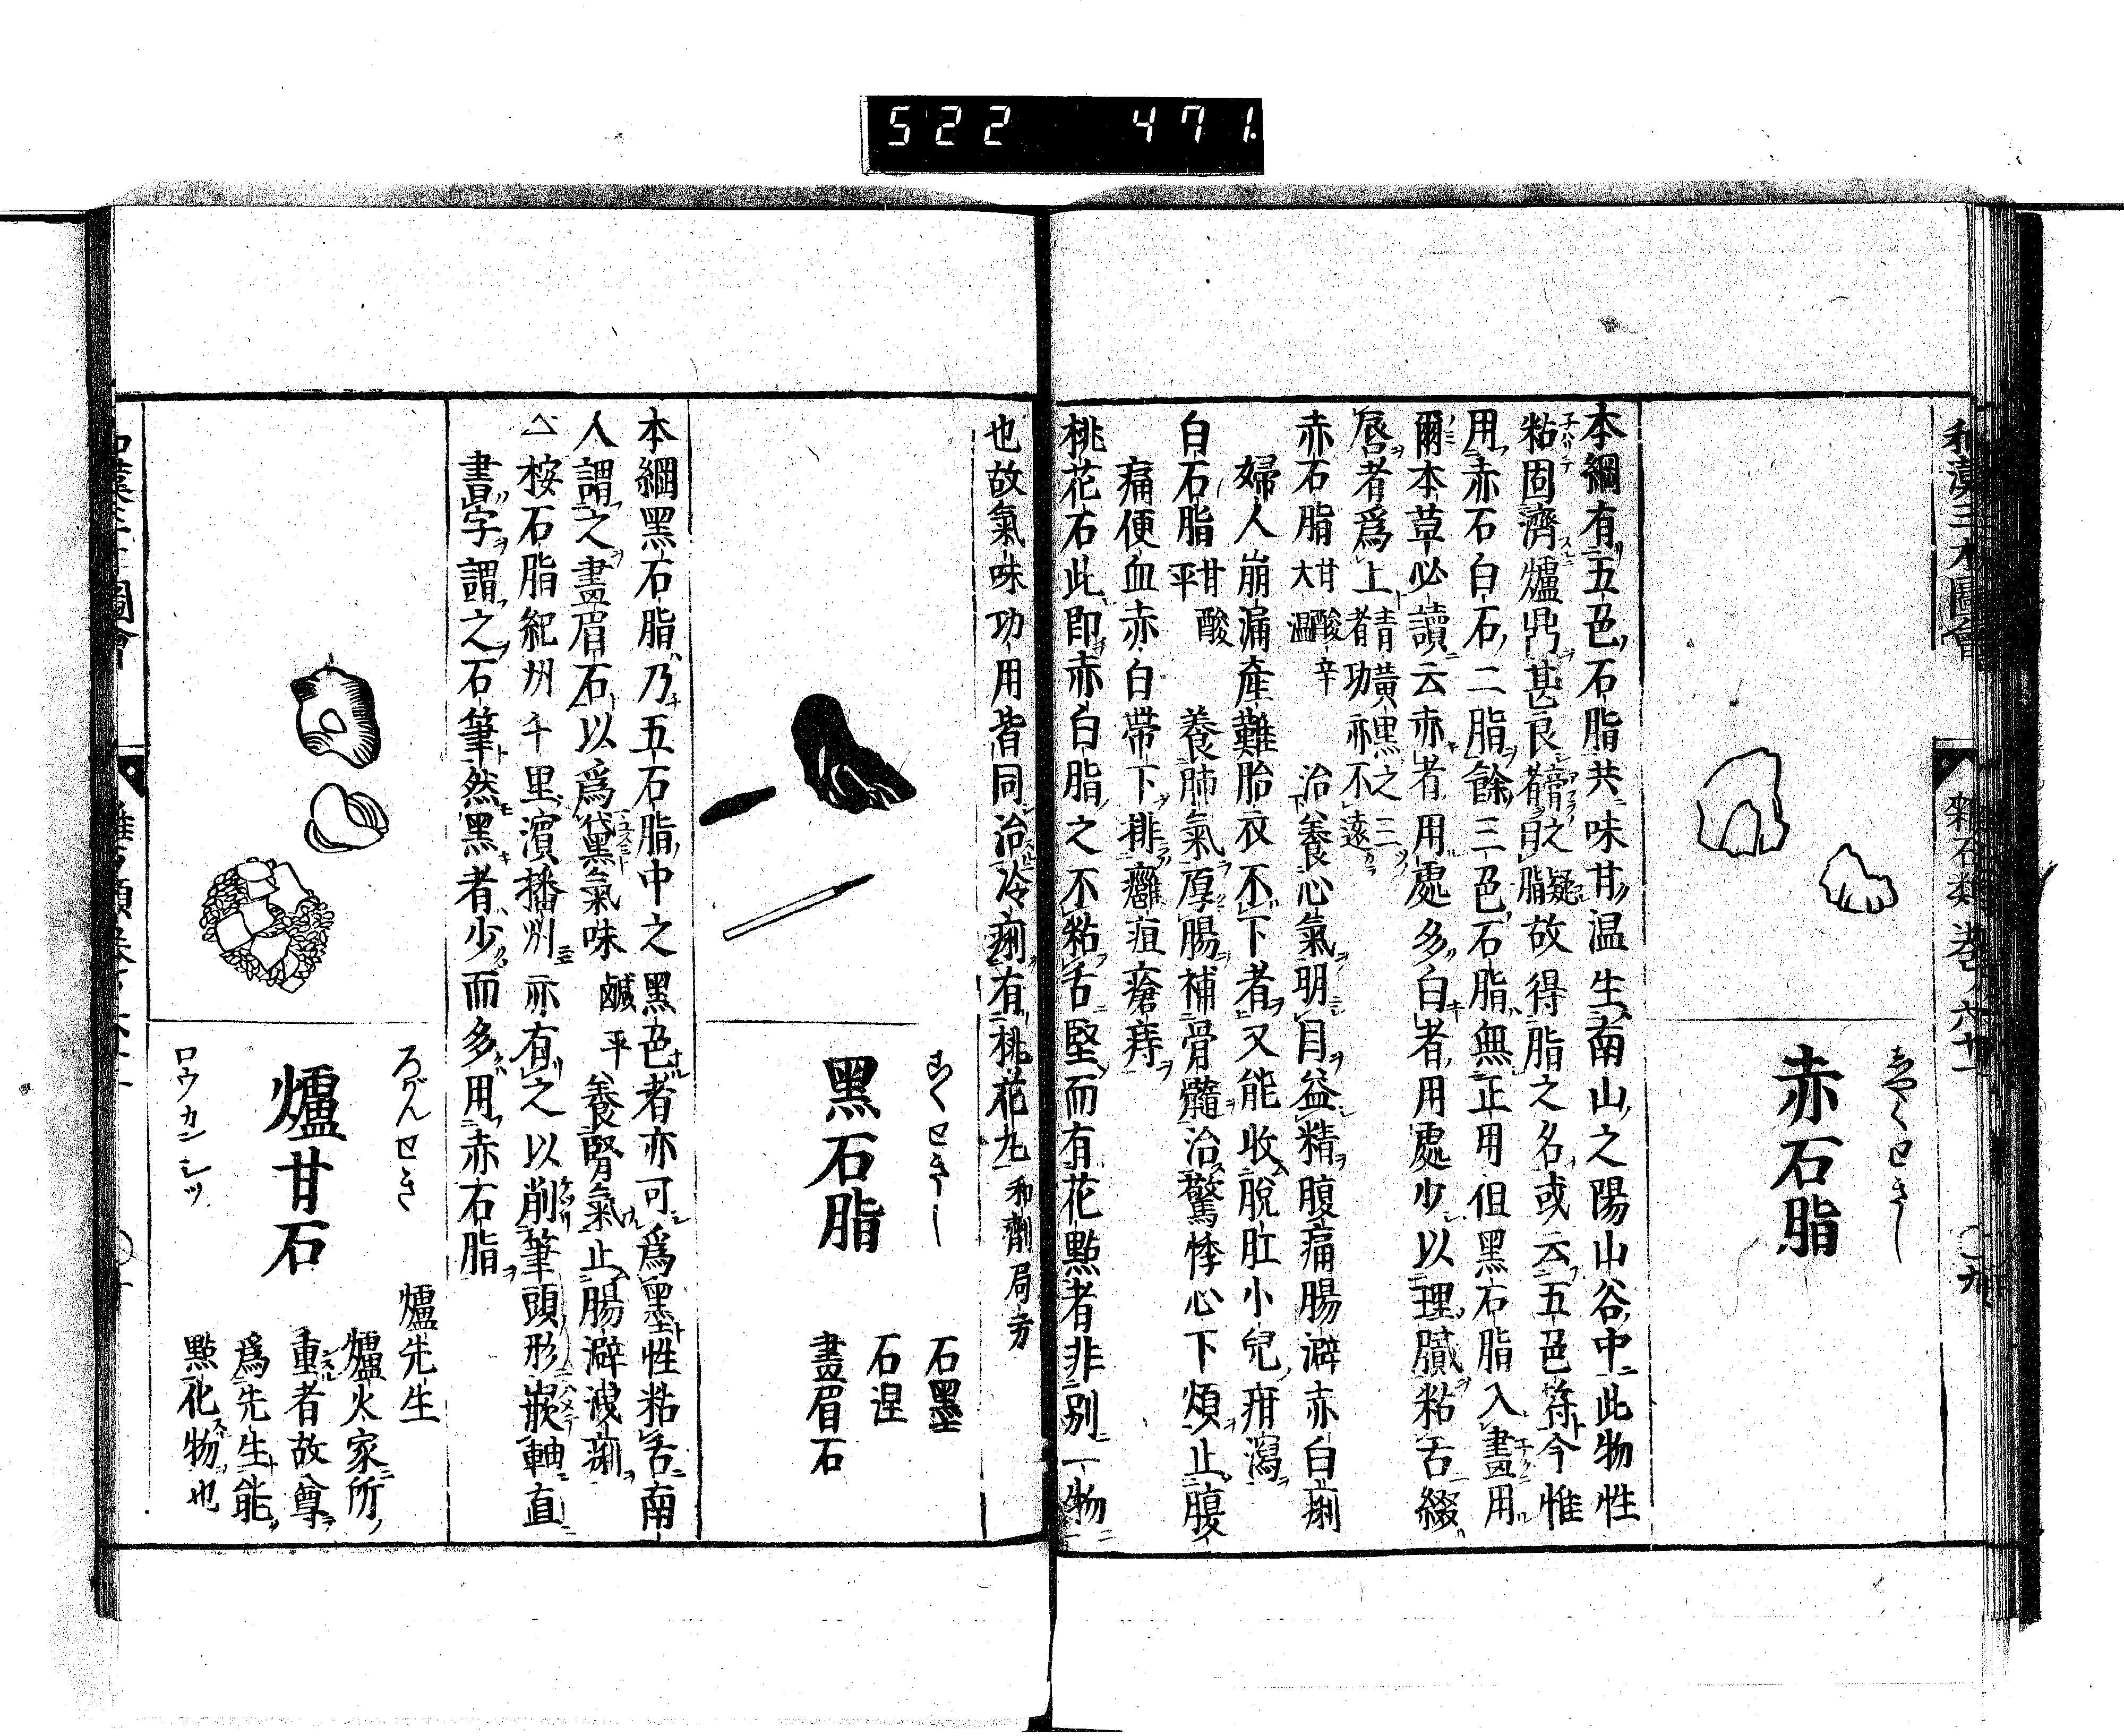 522 471
和漢三才圖會 雜石類 卷ノ六十一 ○九
しやくせきし
赤石脂
本綱有五色石脂共味甘温生南山之陽山谷中此物性
粘固濟爐鼎甚良膏之凝者曰脂故得脂之名或云五色符今惟
用赤石白石二脂餘三色石脂無正用但黑石脂入畫用
爾本草必讀云赤者用處多白者用處少以理膩粘舌綴
唇者爲上青黃黑之三者功亦不遠
赤石脂甘酸辛大温 治養心氣明目益精腹痛腸澼赤白痢
婦人崩漏產難胎衣不下者又能收脫肛小兒疳瀉
白石脂甘酸平 養肺氣厚腸補骨髓治驚悸心下煩止腹
痛便血赤白帶下排癰疽瘡痔
桃花石此卽赤白脂之不粘舌堅而有花㸃者非別一物
也故氣味功用皆同治冷痢有桃花丸和劑局方
こくせきし
黑石脂
石墨
石涅
畫眉石
本綱黑石脂乃五石脂中之黑色者亦可爲墨性粘舌南
人謂之畫眉石以爲黛黑氣味鹹平養腎氣止腸澼洩痢
△桉石脂紀州千里濱播州亦有之以削筆頭形嵌軸直
書字謂之石筆然黑者少而多用赤石脂
ろがんせき
爐甘石
ロウカンシツ
爐先生
爐火家所
重者故尊
爲先生能
㸃化物也